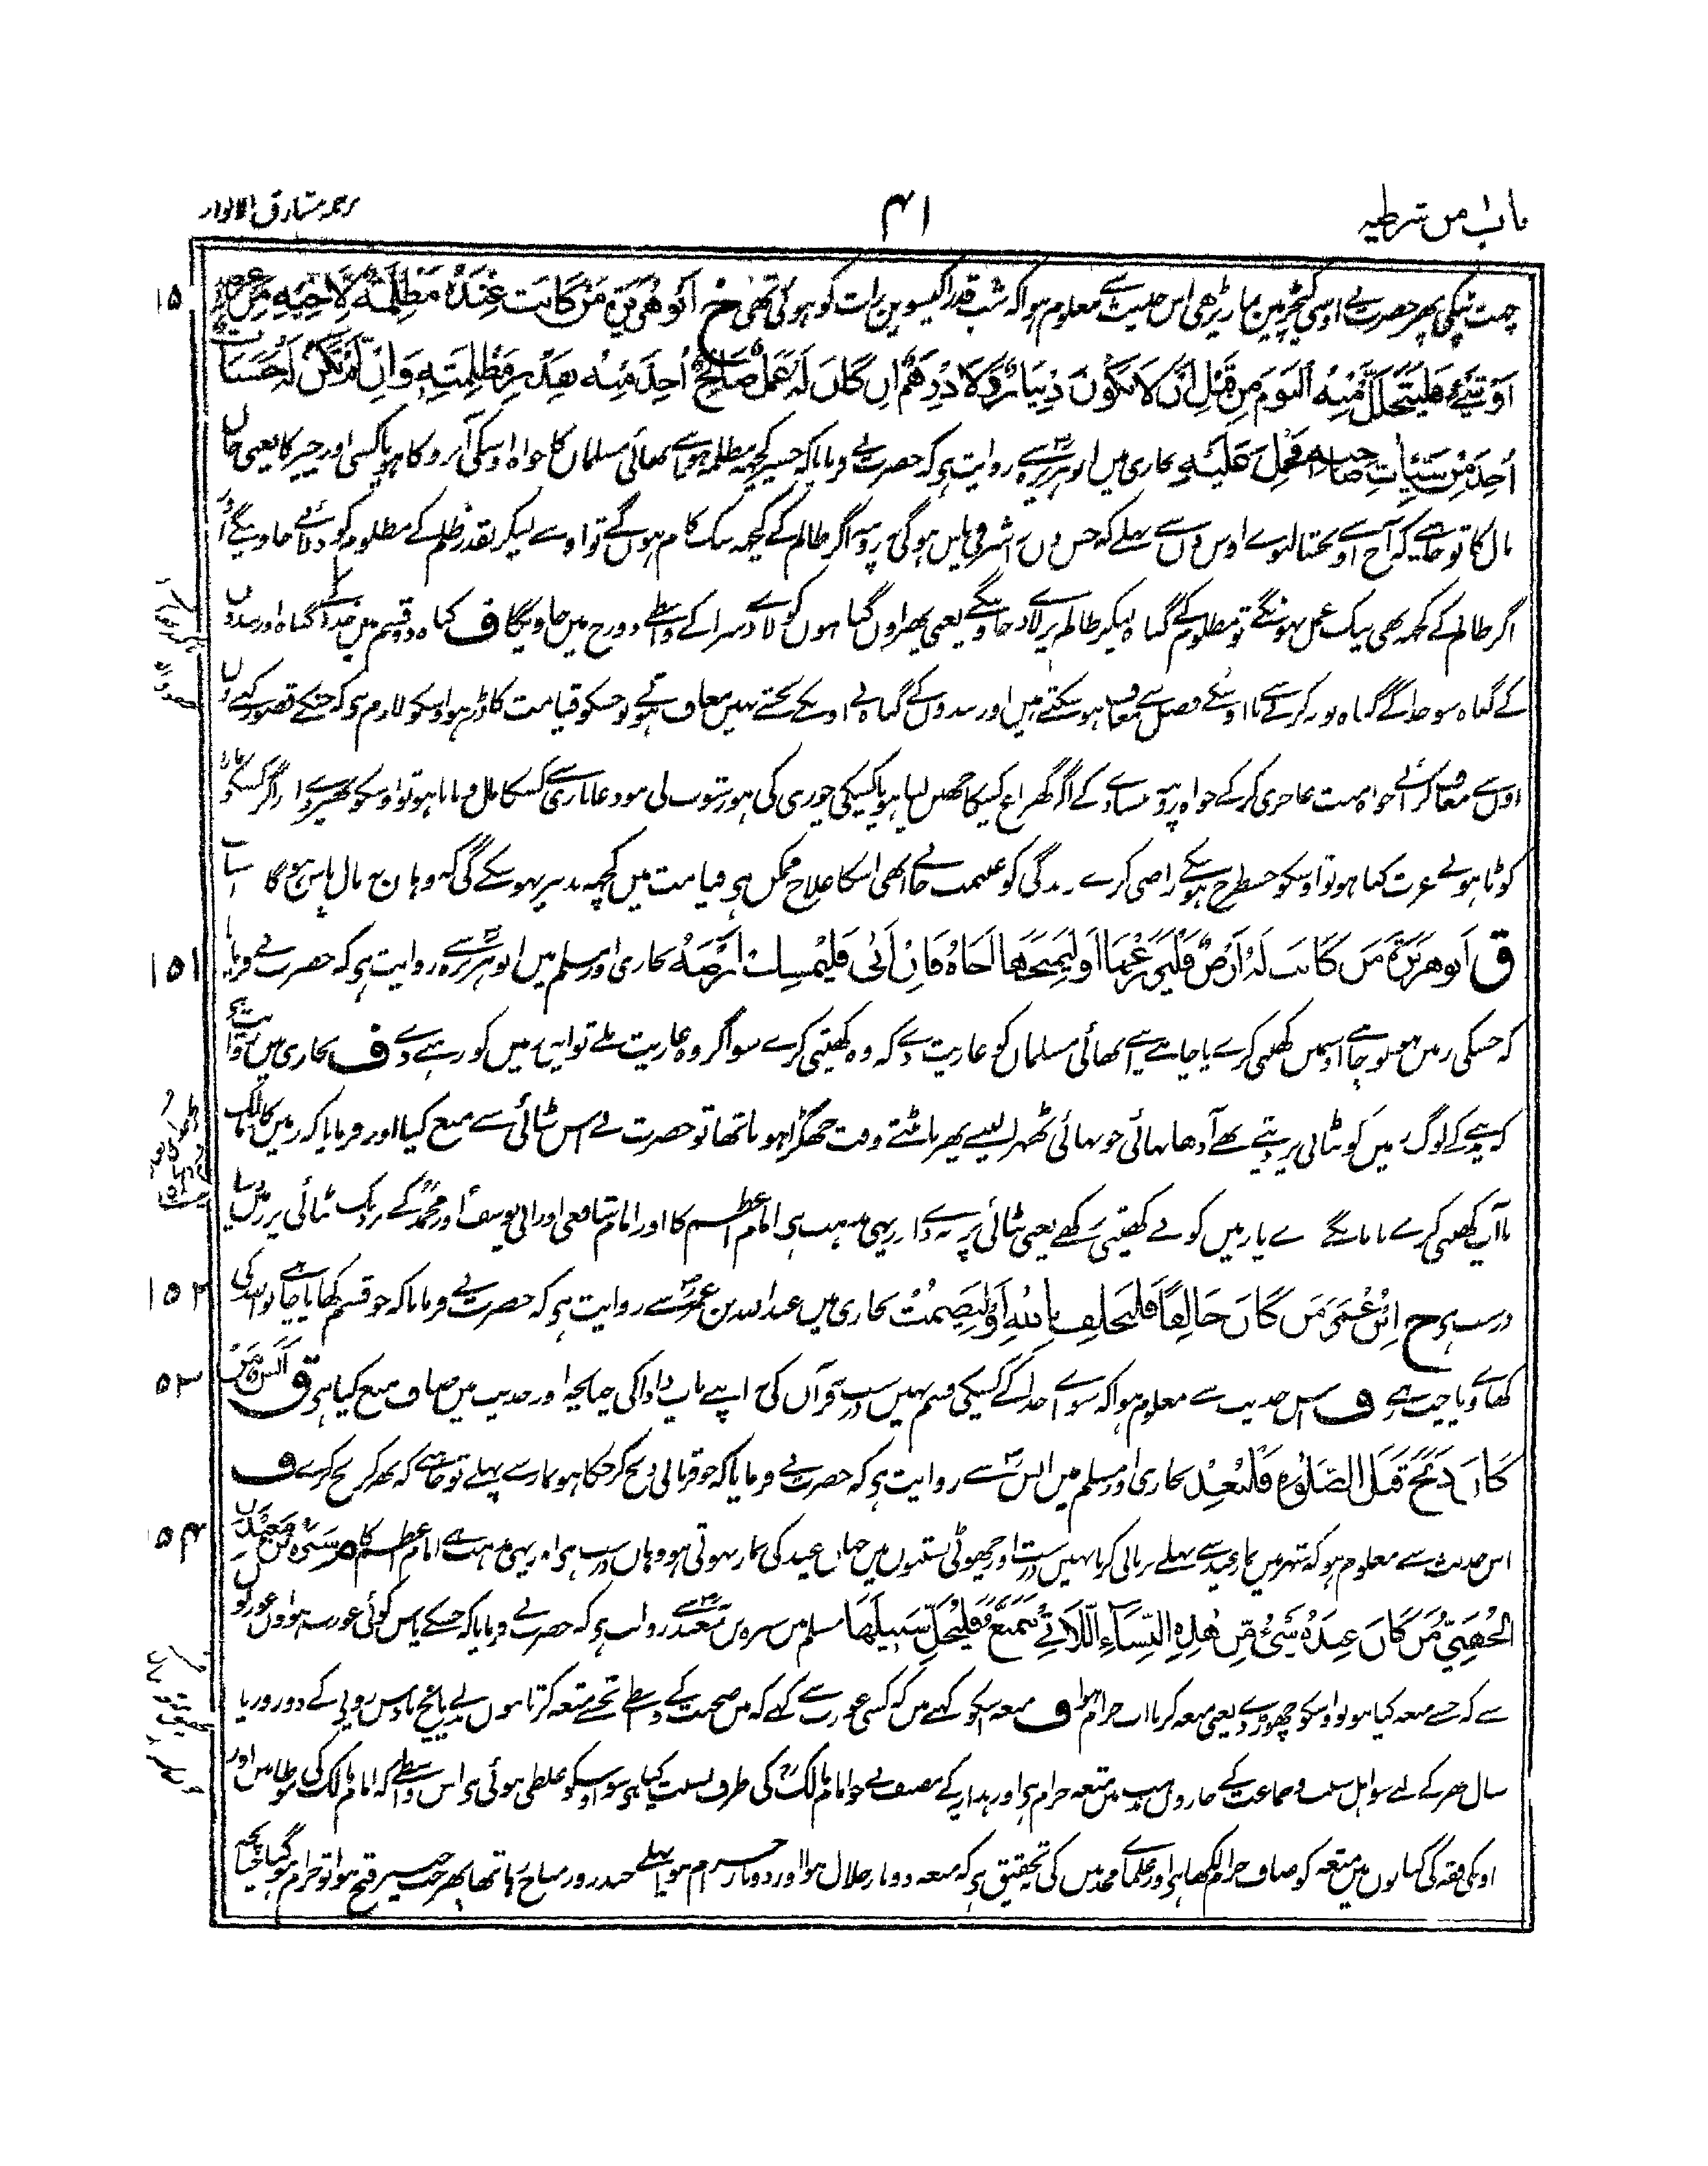 باب من شرطیہ
۴۱
ترجمہ مشارق الانوار
چھت ٹپکی پھر حضرت نے اوسی کیچڑ مین نماز پڑھی اس حدیث سے معلوم ہوا کہ شب قدر اکیسوین رات کو ہوئی تھی خ اَبُو هُرَيْرَةَ مَنْ كَانَت عِنْدَهٗ مَظْلِمَةٌ لِاَخِيْهِ مِنْ عِرْضِهٖ
۱۵
اَوْ شَيْءٍ فَلْيَتَحَلَّلْ مِنْهُ الْيَوْمَ مِنْ قَبْلِ اَنْ لَا يَكُوْنَ دِيْنَارٌ وَّلَا دِرْهَمٌ اِنْ كَانَ لَهٗ عَمَلٌ صَالِحٌ اُخِذَ مِنْهُ بِقَدْرِ مَظْلِمَتِهٖ وَاِنْ لَّمْ تَكُنْ لَهٗ حَسَنَاتٌ
اُخِذَ مِنْ سَيِّاٰتِ صَاحِبِهٖ فَحُمِلَ عَلَيْهِ بخاری میں ابو ہریرہ سے روایت ہی کہ حضرت نے فرمایا کہ جسپر کچھ مظلمہ ہو اپنے بھائی مسلمان کا خواہ اوسکی آبرو کا ہو یا کسی اور چیز کا یعنی جان
مال کا تو چاہیے کہ آج اوسے بخشا لیوے اوس دن سے پہلے کہ جس دن نہ اشرفی پاس ہوگی نہ روپیہ اگر ظالم کے کچھ نیک کام ہوں گے تو اوسے لیکر بقدر ظلم کے مظلوم کو دلائے جاوینگے اور
اگر ظالم کے کچھ بھی نیک عمل نہونگے تو مظلوم کے گناہ لیکر ظالم پر لاد جاوینگے یعنی پھر اون گناہوں کو لاد سزا کے واسطے دوزخ میں جاویگا ف گناہ دو قسم ہیں خدا کے گناہ اور بندوں
کے گناہ سو خدا کے گناہ توبہ کرنے سے یا اوسکے فضل سے معاف ہو سکتے ہیں اور بندوں کے گناہ بے اونکے بخشے نہیں معاف ہوتے تو جسکو قیامت کا ڈر ہو اوسکو لازم ہی کہ جنکے قصور کیے ہوں
اون سے معاف کرائے خواہ منت عاجزی کر کے خواہ روپیہ پیسا دے کے اگر گھر باغ کسیکا چھین لیا ہو یا کسیکی چوری کی ہو رشوت لی ہو دغابازی سے کسیکا مال دبایا ہو تو اوسکو پھیر دے اور اگر کسیکو مارا
کوٹا ہو بے عزت کیا ہو تو اوسکو جسطرح ہو سکے راضی کرے زندگی کو غنیمت جانے ابھی اسکا علاج ممکن ہی قیامت میں کچھ تدبیر نہو سکے گی کہ وہان نہ مال پاس ہو گا نہ اسباب
ق اَبُو هُرَيْرَةَ مَنْ كَانَت لَهٗ اَرْضٌ فَلْيَزْرَعْهَا اَوْ لِيَمْنَحْهَا اَخَاهُ فَاِنْ اَبٰى فَلْيُمْسِكْ اَرْضَهٗ بخاری اور مسلم میں ابو ہریرہ سے روایت ہی کہ حضرت نے فرمایا
۱۵۱
کہ جسکی زمین ہو تو چاہیے اوسمیں کھیتی کرے یا چاہیے اپنے بھائی مسلمان کو عاریت دے کہ وہ کھیتی کرے سو اگر وہ عاریت نہ لے تو اپنی زمین کو رہنے دے ف بخاری میں روایت ہی
کہ مدینے کے لوگ زمین کو بٹائی پر دیتے تھے آدھا تہائی چوتھائی ٹھہرا لیتے پھر بانٹتے وقت جھگڑا ہوتا تھا تو حضرت نے اس بٹائی سے منع کیا اور فرمایا کہ زمین کا مالک
یا آپ کھیتی کرے یا مانگے دے یا زمین کو بے کھیتی رکھے یعنی بٹائی پر نہ دے اور یہی مذہب ہی امام اعظم کا اور امام شافعی اور ابی یوسف اور محمد کے نزدیک بٹائی پر زمین دینا
درست ہی خ اِبْنُ عُمَرَ مَنْ كَانَ حَالِفًا فَلْيَحْلِفْ بِاللّٰهِ اَوْ لِيَصْمُتْ بخاری میں عبداللہ بن عمر سے روایت ہی کہ حضرت نے فرمایا کہ جو قسم کھایا چاہے تو اللہ کی
۱۵۲
کھاوے یا چپ رہے ف اس حدیث سے معلوم ہوا کہ سوائے خدا کے کسیکی قسم نہیں درست نہ قرآن کی نہ اپنے باپ دادا کی چنانچہ اور حدیث میں صاف منع کیا ہی ق اَنَسٌ مَنْ
۵۳
كَانَ ذَبَحَ قَبْلَ الصَّلٰوةِ فَلْيُعِدْ بخاری اور مسلم میں انس سے روایت ہی کہ حضرت نے فرمایا کہ جو قربانی ذبح کر چکا ہو نماز سے پہلے تو چاہیے کہ پھر کر ذبح کرے ف
اس حدیث سے معلوم ہوا کہ شہر میں نماز عید سے پہلے قربانی کرنا نہیں درست اور چھوٹی بستیوں میں جہاں عید کی نماز نہوتی ہو وہاں درست ہی اور یہی مذہب ہے امام اعظم کا م سَبْرَةُ بْنُ مَعْبَدٍ
۵۴
الْجُهَنِيُّ مَنْ كَانَ عِنْدَهٗ شَيْءٌ مِّنْ هٰذِهِ النِّسَآءِ اللَّاتِيْ يَتَمَتَّعُ فَلْيُخَلِّ سَبِيْلَهَا مسلم میں سبرہ بن معبد سے روایت ہی کہ حضرت نے فرمایا کہ جسکے پاس کوئی عورت ہو اون عورتوں
سے کہ جسے متعہ کیا ہو تو اوسکو چھوڑ دے یعنی متعہ کرنا اب حرام ہوا ف متعہ اسکو کہتے ہیں کہ کسی عورت سے کہے کہ میں صحبت کے واسطے تجھے متعہ کرتا ہوں بدلے پانچ یا دس روپے کے دو روز یا
سال بھر کے لیے سو اہل سنت و جماعت کے چاروں مذہب میں متعہ حرام ہی اور ہدایہ کے مصنف نے جو امام مالک کی طرف نسبت کیا ہی سو اوسکو غلطی ہوئی ہی اس واسطے کہ امام مالک کی موطا میں اور
اونکی فقہ کی کتابوں میں متعہ کو صاف حرام لکھا ہی اور علمائے محدثین کی تحقیق ہی کہ متعہ دوبار حلال ہوا اور دوبار حرام ہوا پہلے چند روز مباح رہا تھا پھر جب خیبر فتح ہوا تو حرام ہو گیا چنانچہ